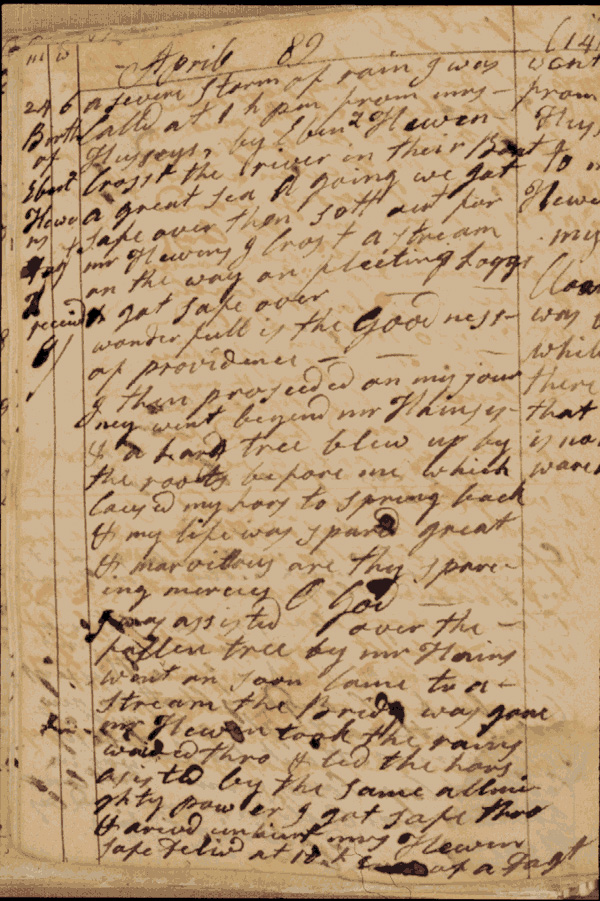 m w
April 89
24 6 a severe Storm of rain I was
Calld at 1 h pm from mrs
Husseys, by Ebenz Hewen
Crosst the river in their Boat
a great sea A going we got
safe over then sott out for
mr Hewins I Crost a stream
on the way on fleeting Loggs
& got safe over
wonder full is the Good ness
of providence
I then proseeded on my jour
ney went beyond mr Hainses
& a Large tree blew up by
the roots before me which
Caused my hors to spring back
& my life was spard great
& marvillous are thy spare
ing mercies O God
I was assisted over the
fallen tree by mr Hains
went on soon Came to a
stream the Bridg was gone
mr Hewin took the rains
waided thro & led the hors
asisted by the same allmi
ghty power I got safe thro
& arivd unhurt mrs Hewin
safe delivd at 10 h of a Dagt
Birth
of
Ebenz
Hewe
ns
receivd
(141
went
from
Huss
to
Hewe
my
was
while
there
that
is no